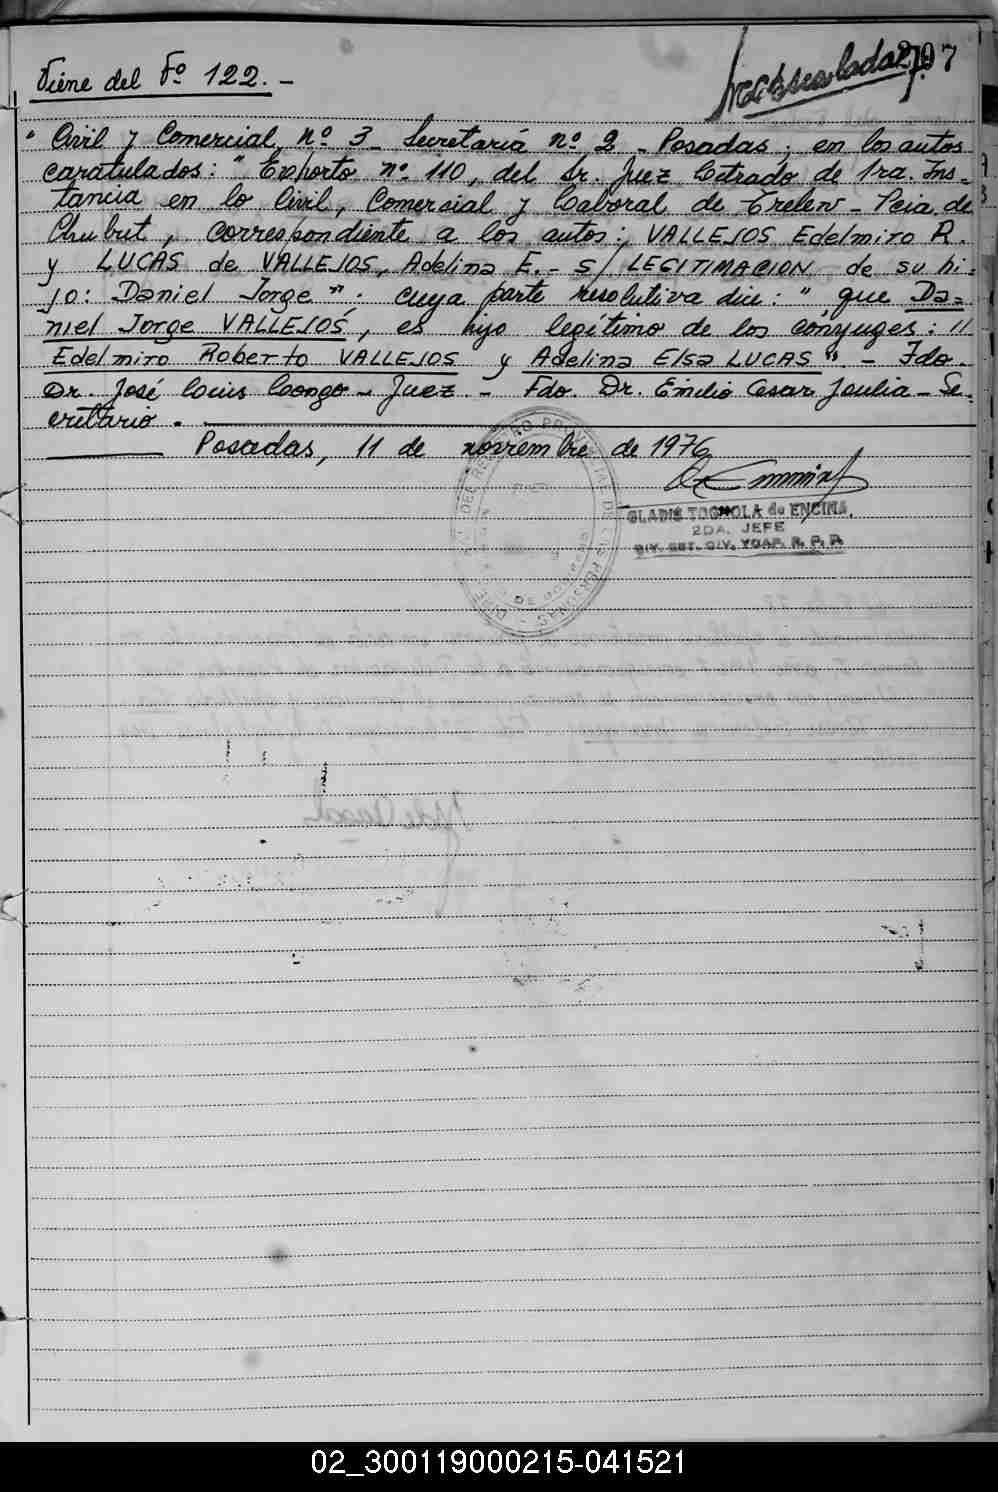 Viene del Fº 122. -
207
" Civil y Comercial, nº 3 - Secretaría nº 2 - Posadas; en los autos
caratulados: " Exhorto nº 110, del Sr. Juez Letrado de 1ra. Ins-
tancia en lo Civil, Comercial y Laboral de Trelew - Pcia. de
Chubut, correspondiente a los autos: VALLEJOS Edelmiro R.
y LUCAS de VALLEJOS, Adelina E. - S/ LEGITIMACION de su hi-
jo: Daniel Jorge "; cuya parte resolutiva dice: " que Da-
niel Jorge VALLEJOS, es hijo legítimo de los cónyuges: //
Edelmiro Roberto VALLEJOS y Adelina Elsa LUCAS " - Fdo.
Dr. José Louis Longo - Juez. - Fdo. Dr. Emilio Cesar Joulia - Se-
cretario.
Posadas, 11 de noviembre de 1976
GLADIS TOGNOLA de ENCINA
2DA. JEFE
02_300119000215-041521